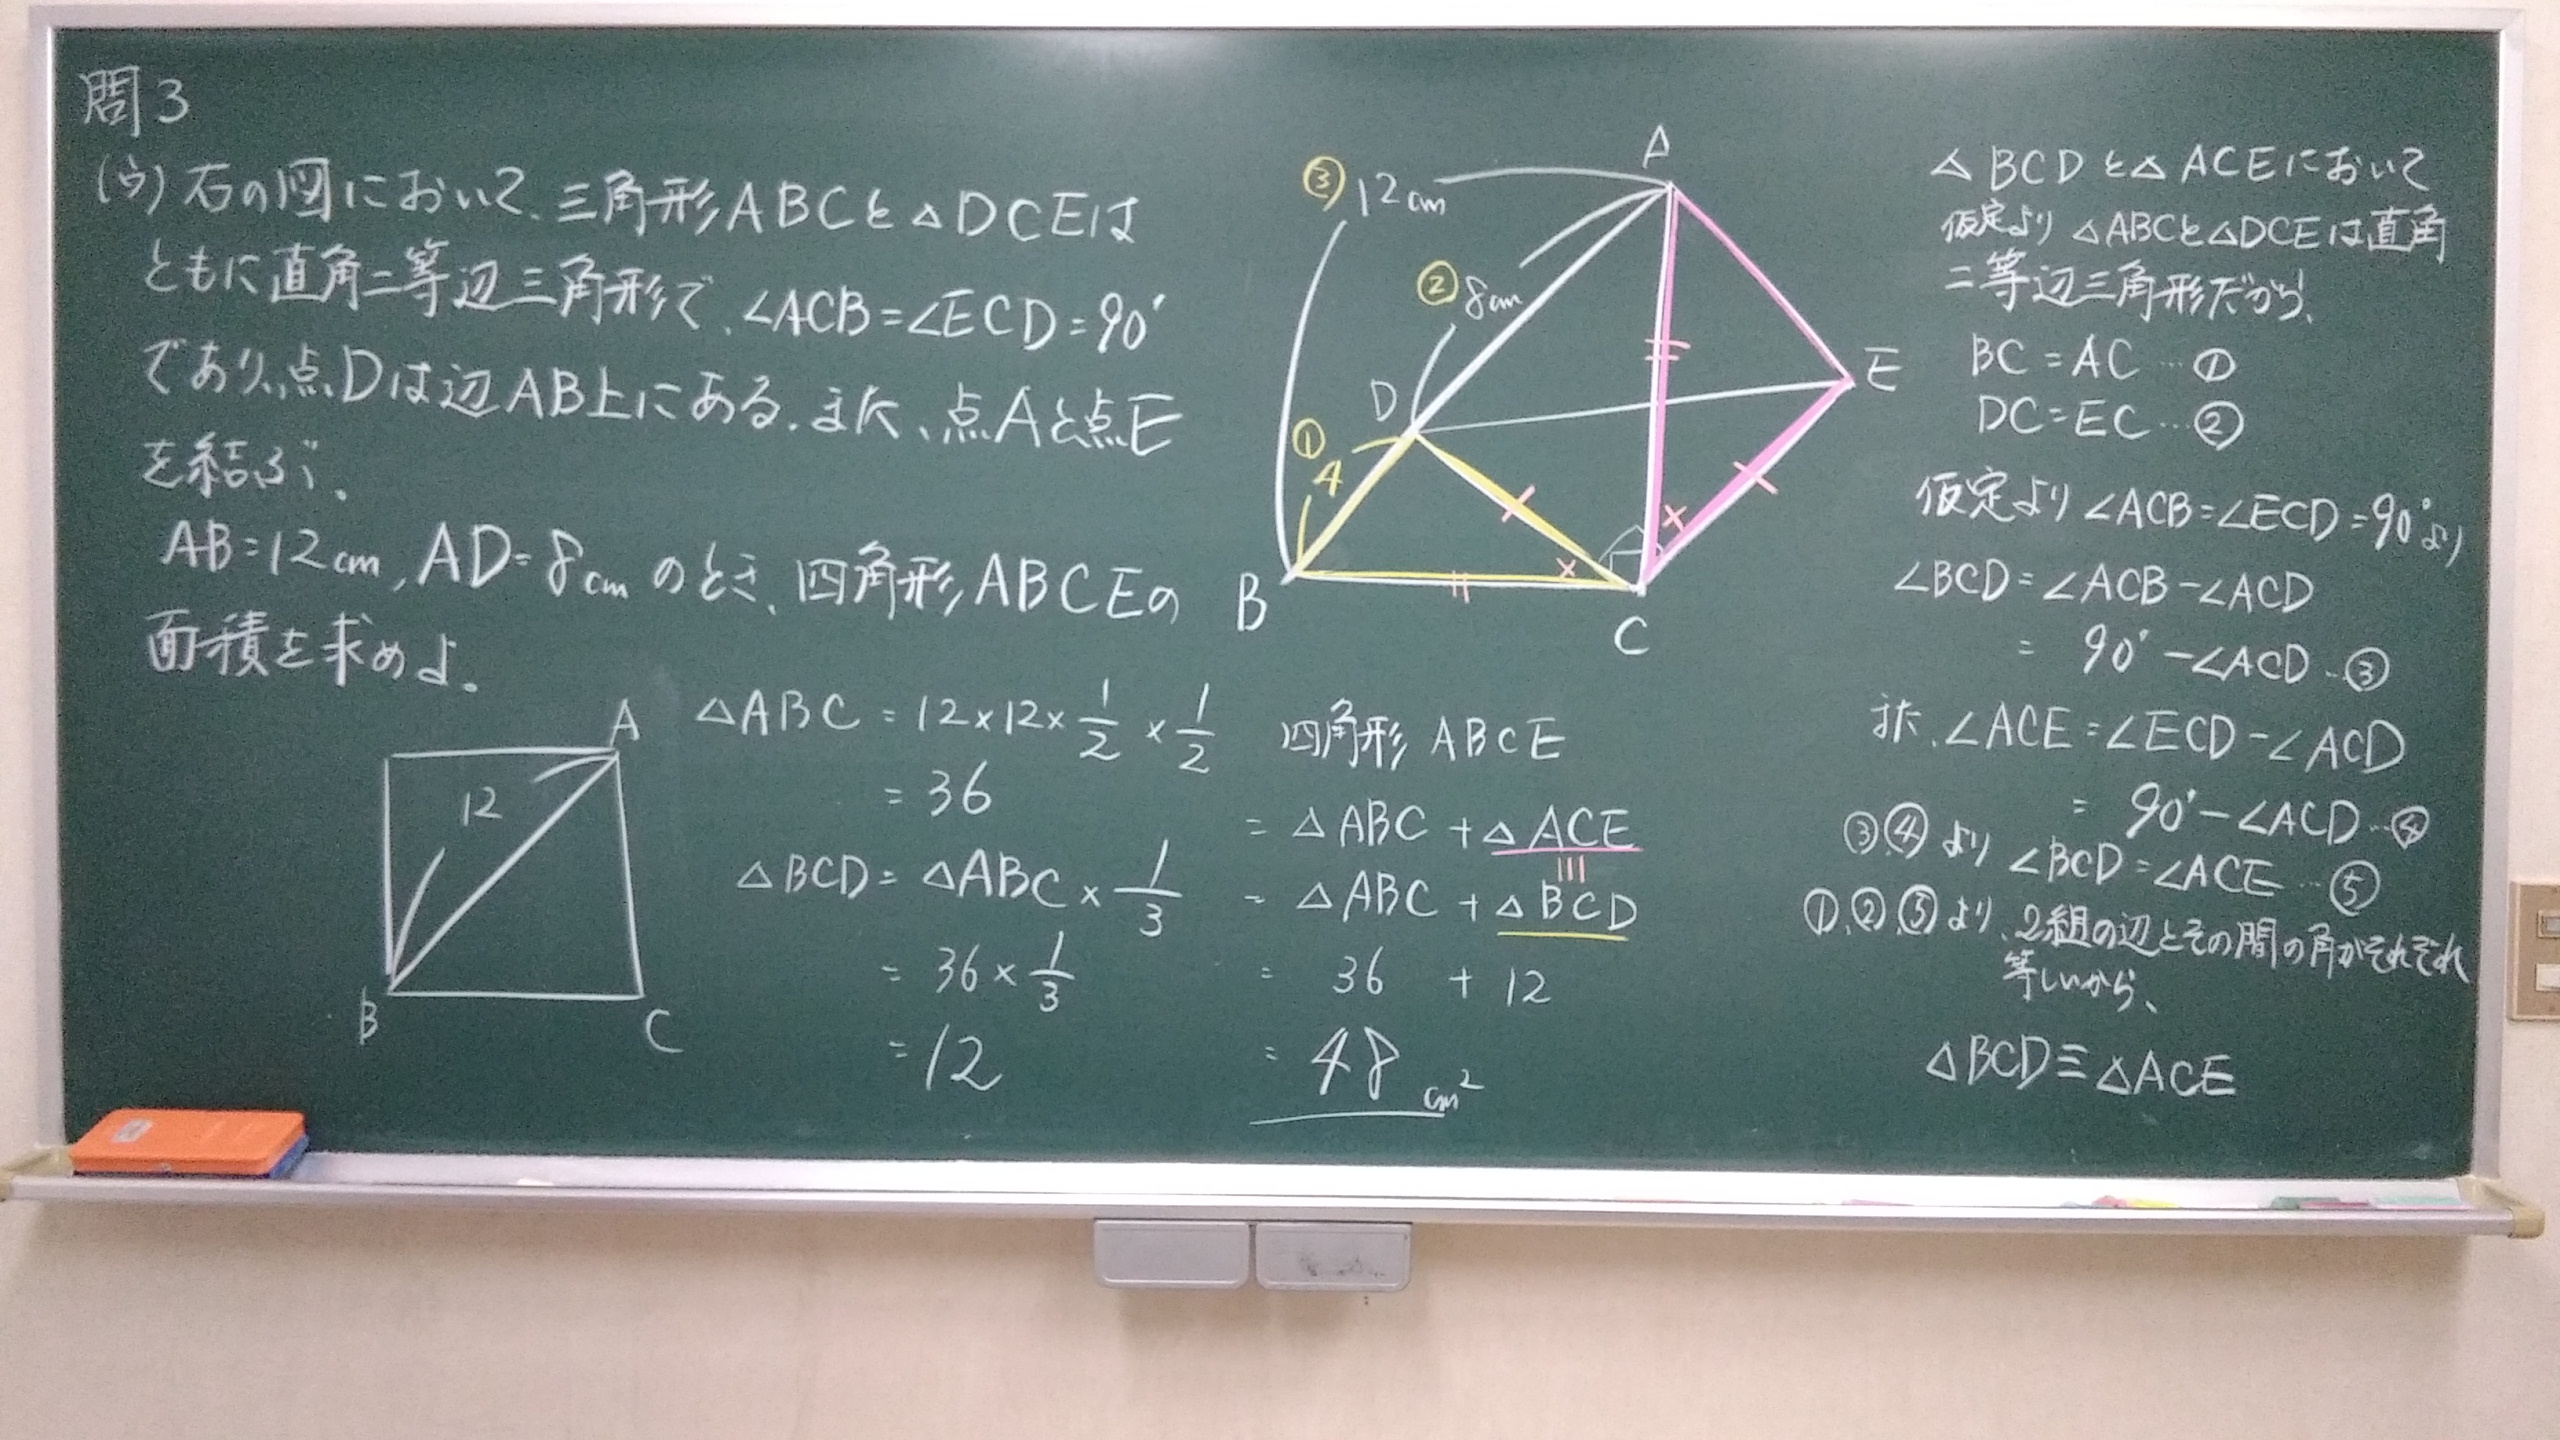 問3
(ウ) 右の図において、三角形ABCと△DCEは
ともに直角二等辺三角形で、∠ACB=∠ECD=90°
であり、点Dは辺AB上にある。また、点Aと点E
を結ぶ。
AB=12cm, AD=8cmのとき、四角形ABCEの
面積を求めよ。
A
12
B
C
△ABC = 12×12×1/2×1/2
= 36
△BCD = △ABC×1/3
= 36×1/3
= 12
③ 12cm
② 8cm
① 4
A
D
E
B
C
四角形 ABCE
= △ABC + △ACE
= △ABC + △BCD
= 36 + 12
= 48 cm²
△BCDと△ACEにおいて
仮定より △ABCと△DCEは直角
二等辺三角形だから、
BC=AC…①
DC=EC…②
仮定より ∠ACB=∠ECD=90°より
∠BCD=∠ACB-∠ACD
= 90°-∠ACD…③
また、∠ACE=∠ECD-∠ACD
= 90°-∠ACD…④
③④より ∠BCD=∠ACE…⑤
①,②,⑤より、2組の辺とその間の角がそれぞれ
等しいから、
△BCD≡△ACE